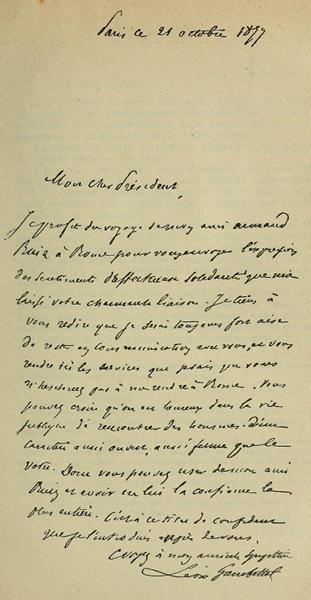 Paris ce 21 octobre 1877
Mon cher Président,
Je profite du voyage de mon ami Armand
Ruiz à Rome pour vous envoyer l'expression
des sentiments d'affectueuse solidarité que m'a
laissé votre charmante liaison. Je tiens à
vous redire que je serai toujours fort aise
de rester en communication avec vous, de vous
rendre ici les services que je puis
n'hésiterez pas à me rendre à Rome. Vous
pouvez croire qu'on est heureux dans la vie
publique de rencontrer des hommes d'un
caractère aussi ouvert, aussi ferme que le
vôtre. Donc vous pouvez user de mon ami
Ruiz et avoir en lui la confiance la
plus entière. C'est à ce titre de confident
que je l'introduis auprès de vous.
Croyez à mon amicale
Léon Gambetta